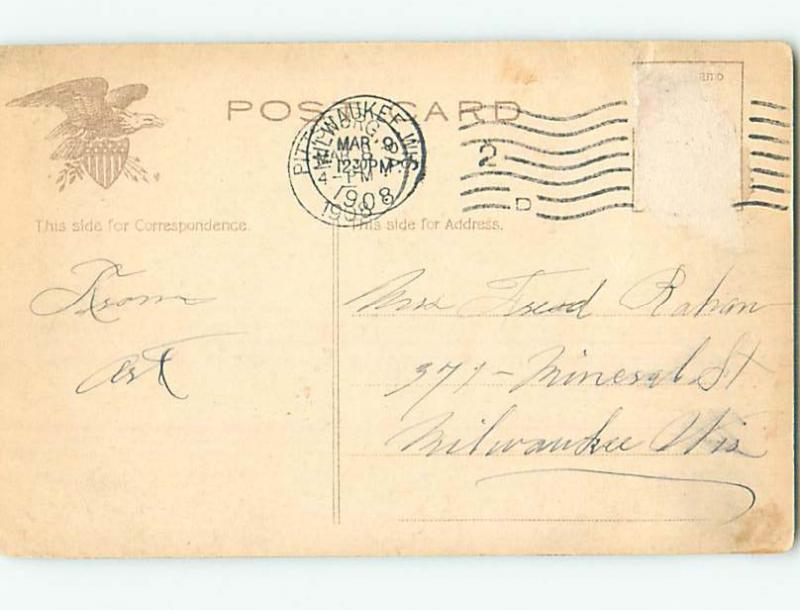 POST CARD
PITTSBURG, PA.
MAR 8
4-PM
1908
MILWAUKEE, WIS
MAR 9
1230PM
1908
2
D
This side for Correspondence.
This side for Address.
From
Art
Mrs Fred Rahan
371-Mineral St
Milwaukee Wis